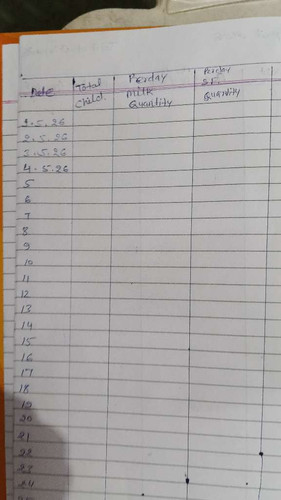 Date
Total
Child.
Perday
milk
Quantity
Perday
S.F.
Quantity
1.5.26
2.5.26
3.5.26
4.5.26
5
6
7
8
9
10
11
12
13
14
15
16
17
18
19
20
21
22
23
24
25